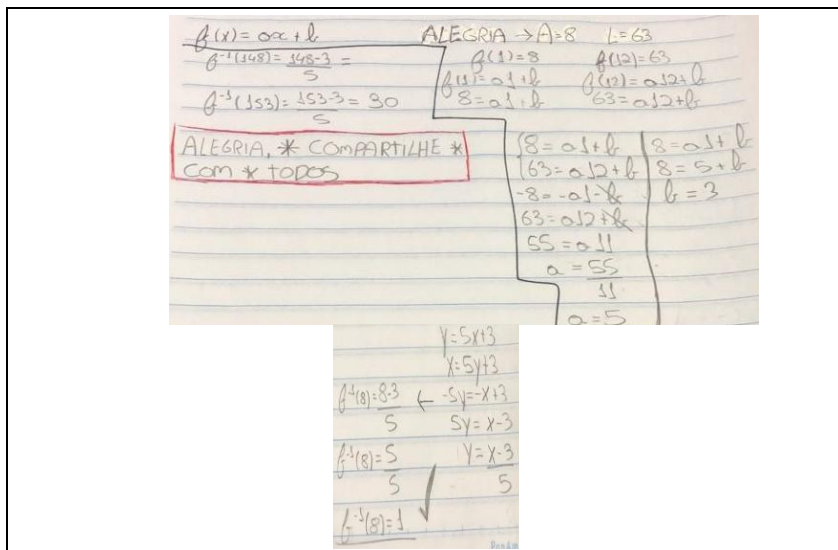 f(x) = ax + b
f⁻¹(148) = 148-3 =
5
f⁻¹(153) = 153-3 = 30
5
ALEGRIA, * COMPARTILHE *
COM * TODOS
ALEGRIA → A=8 L=63
f(1)=8 f(12)=63
f(1)=a1+b f(12)=a12+b
8=a1+b 63=a12+b
8=a1+b
63=a12+b
-8=-a1-b
63=a12+b
55=a11
a=55
11
a=5
8=a1+b
8=5+b
b=3
y=5x+3
x=5y+3
-5y=-x+3
5y=x-3
y=x-3
5
f⁻¹(8)=8-3 ←
5
f⁻¹(8)=5
5
f⁻¹(8)=1